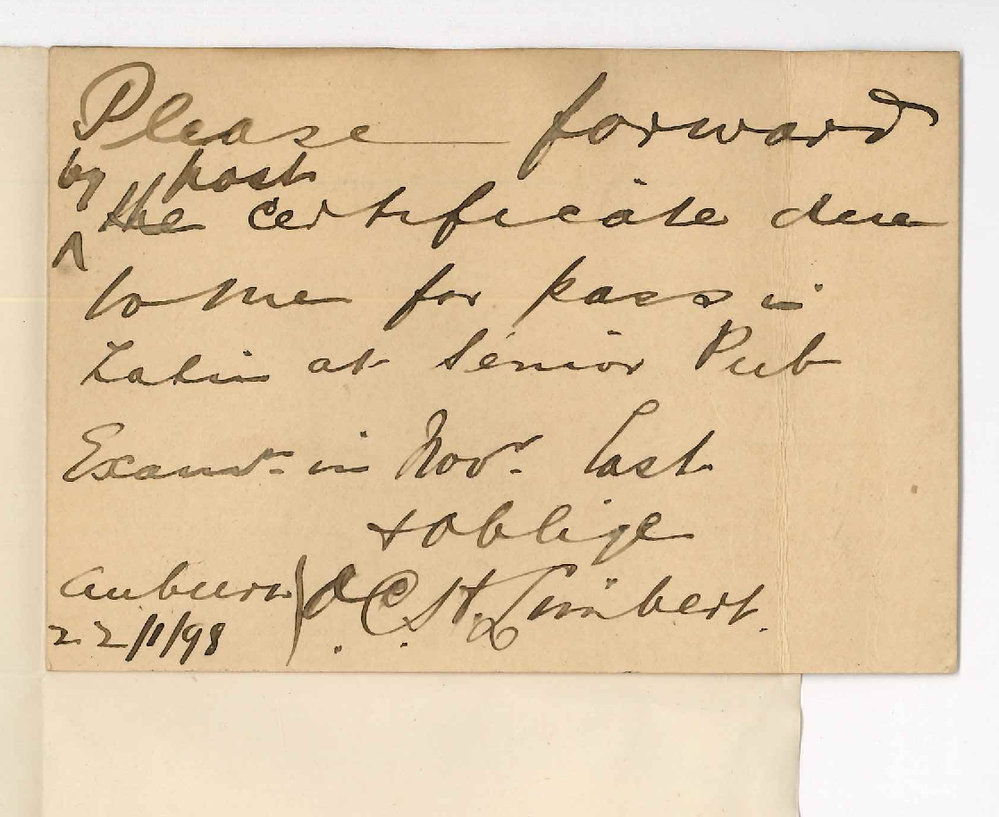 Please forward
by post
^ the certificate due
to me for pass in
Latin at Senior Pub
Examn. in Novr. last
& oblige
Auburn
22/1/98
C. H. Limbert.